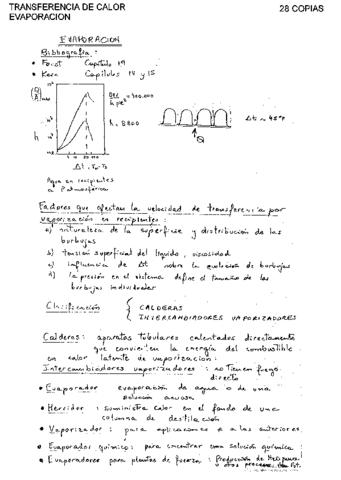 TRANSFERENCIA DE CALOR
28 COPIAS
EVAPORACION
EVAPORACION
Bibliografía:
• Foust Capítulo 19
• Kern Capítulos 14 y 15
h = 8800
Δt ≈ 45°F
h
Q
Agua en recipientes
a P atmosférica
Factores que afectan la velocidad de transferencia por
vaporización en recipientes:
a) naturaleza de la superficie y distribución de las
burbujas
b) tensión superficial del líquido, viscosidad
c) influencia de Δt sobre la evolución de burbujas
d) la presión en el sistema define el tamaño de las
burbujas individuales
Clasificación
CALDERAS
INTERCAMBIADORES VAPORIZADORES
Calderas: aparatos tubulares calentados directamente
que convierten la energía del combustible
en calor latente de vaporización:
Intercambiadores vaporizadores: no tienen fuego
directo
• Evaporador evaporación de agua o de una
solución acuosa
• Hervidor: suministra calor en el fondo de una
columna de destilación
• Vaporizador: para aplicaciones a las anteriores
• Evaporador químico: para concentrar una solución química
• Evaporadores para plantas de fuerza: Producción de
o otros procesos